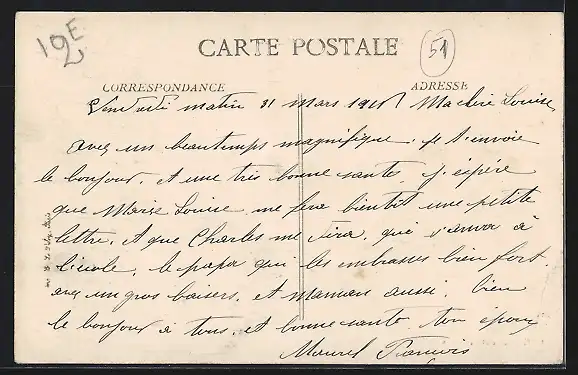 19E
2
CARTE POSTALE
51
CORRESPONDANCE
ADRESSE
matin 31 mars 191 Ma chère Louise
avec un beau temps magnifique. je t'envoie
le bonjour. et une très bonne santé, j'espère
que Marie Louise me fera bientôt une petite
lettre. et que Charles me dira, qui s'en va à
l'école, le papa qui les embrasses bien fort.
avec un gros baisers. et maman aussi. bien
le bonjour à tous. et bonne santé. ton époux
Maurel